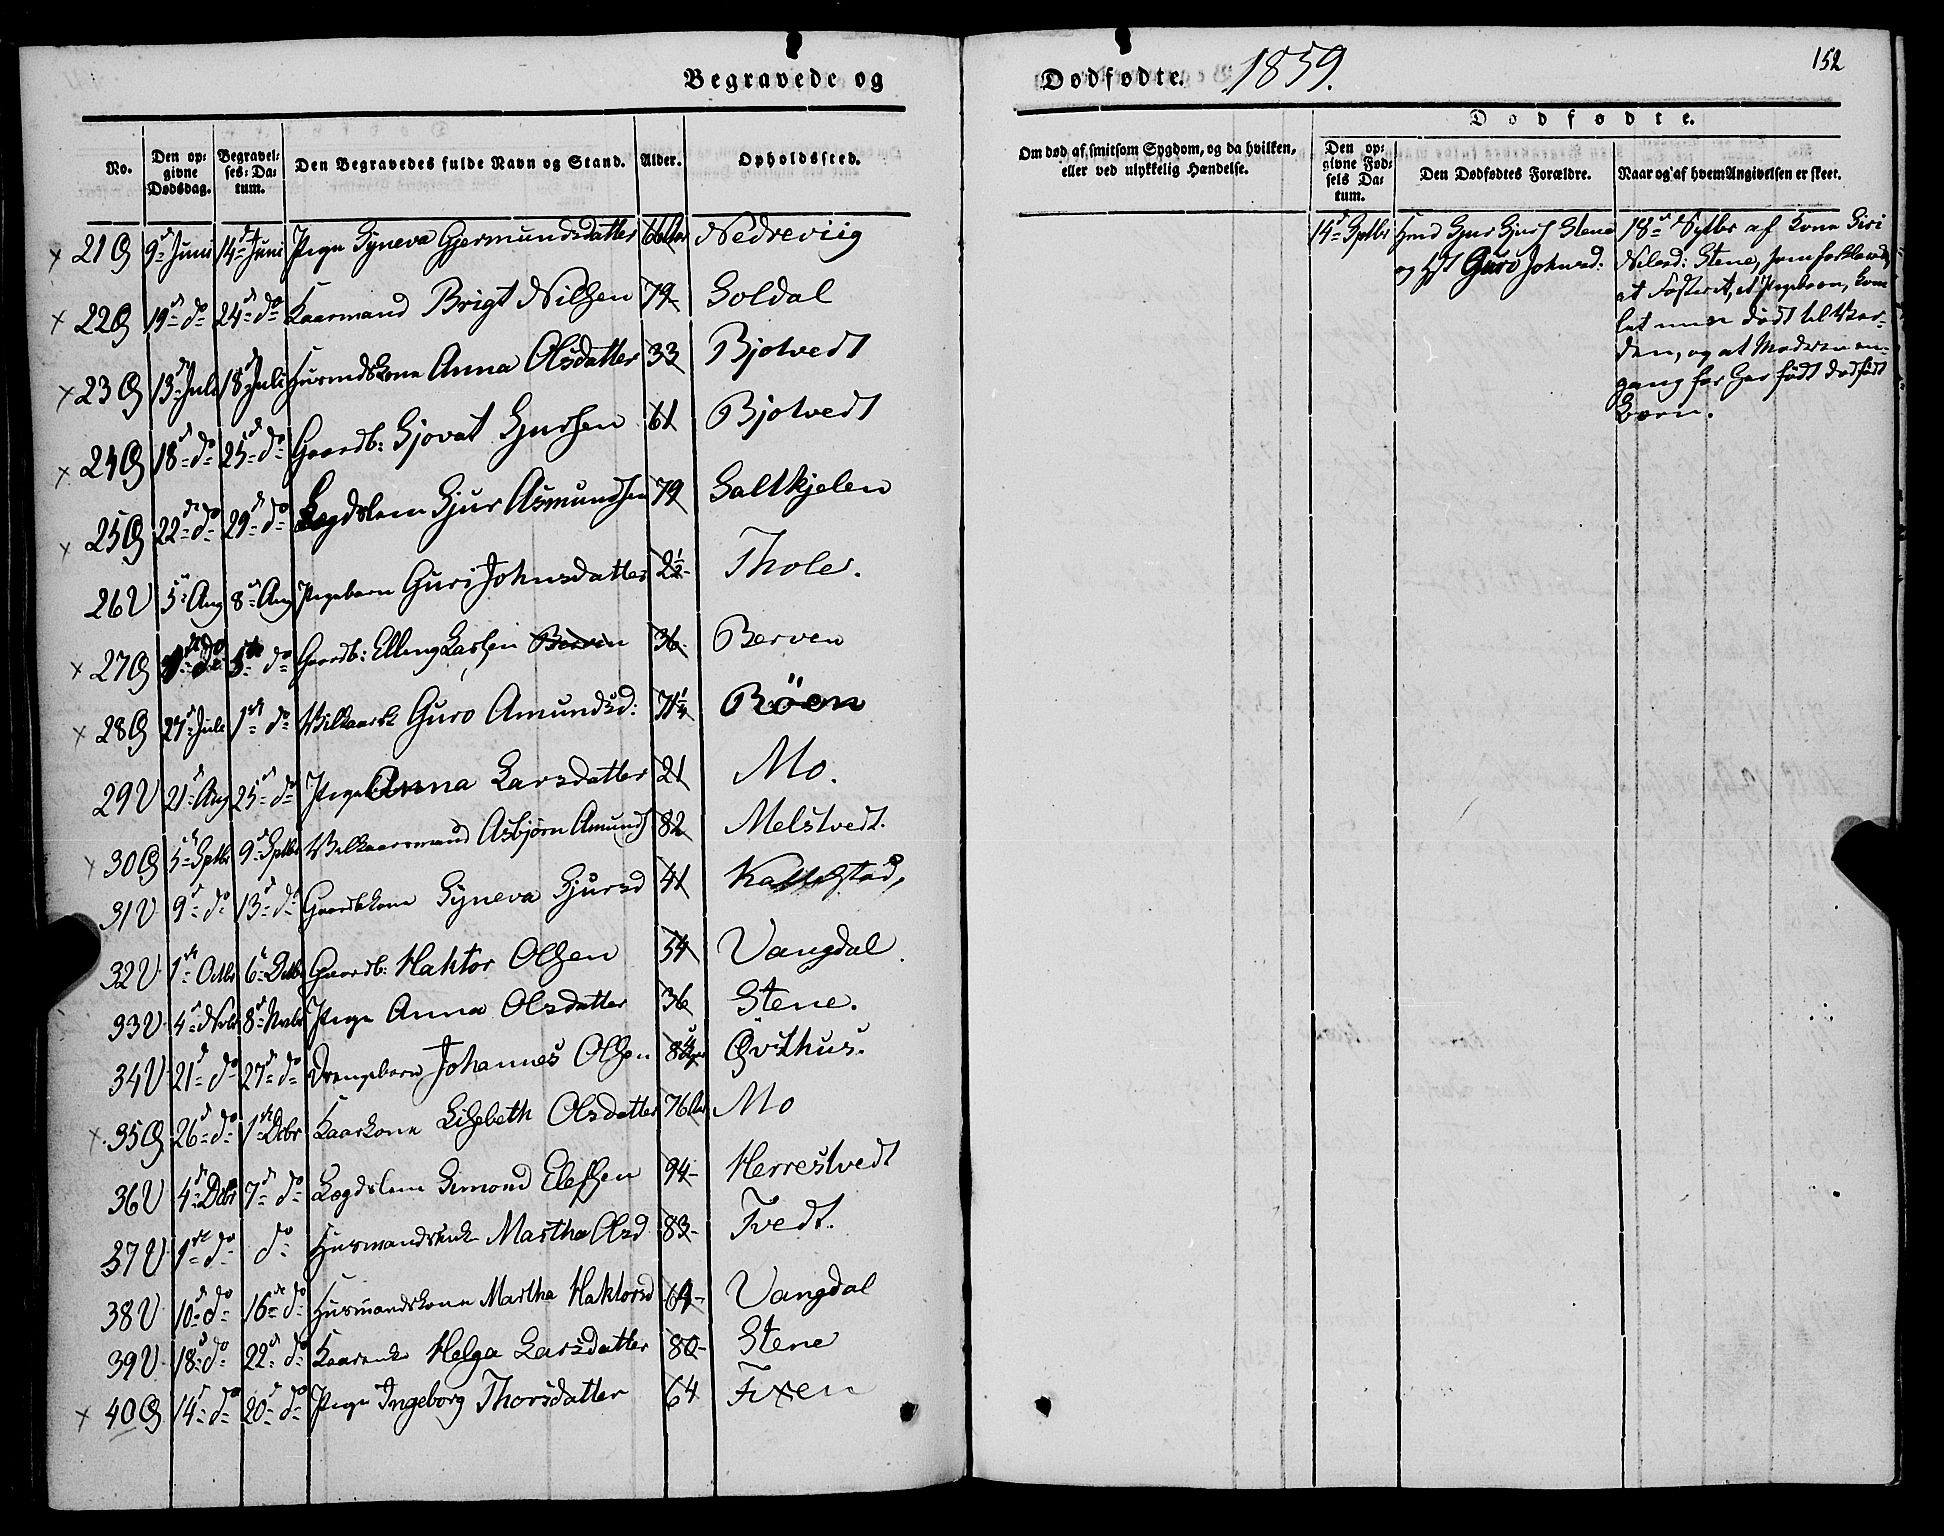 Begravede og
No. Den op: givne Dødsdag. Begravel: ses: Da: tum. Den Begravedes fulde Navn og Stand. Alder. Opholdssted.
21 Ø 9de Juni 14de Juni Pige Syneva Gjermundsdatter 66 Aar Nedreviig
22 Ø 19de do 24de do Kaarmand Brigt Nilssen 79 - Soldal
23 Ø 13de Juli 18de Juli Husmdskone Anna Olsdatter 33 Bjotvedt
24 Ø 18de do 25de do Gaardb: Sjovat Sjursen 61 Bjotvedt
25 Ø 22de do 29de do Lægdslem Sjur Asmundsen 79 Saltkjelen
26 V 5te Aug 8de Aug Pigebarn Guri Johnsdatter 2½ - Tholer.
27 Ø do do Gaardb: Elling Larssen 36 - Berven
28 Ø 27de Juli 1ste do Vilkaarsk Guro Amundsd: 71¼ Røen
29 V 21de Aug 25de do Pige Anna Larsdatter 21 Mo.
30 Ø 5te Sptbr 9de Sptbr Vilkaarsmand Asbjørn Amunds 82 Melstvedt.
31 V 9de do 13de do Gaardbkone Syneva Sjursd 41
32 V 1ste Octbr 6te Octbr Gaardb: Haktor Olssen 54 Vangdal
33 V 4de Nvbr 8de Nvbr Pige Anna Olsdatter 36 Stene.
34 V 21de do 27de do Drengebarn Johannes Olssen Qvithus.
35 Ø 26de do 1ste Dcbr Kaarkone Lisbeth Olsdatter 76 Aar Mo
36 V 4de Dcbr 7de do Lægdslem Simond Elefsen 94 - Herrestvedt
37 V 1ste do do Husmandsenke Martha Olsd 83 - Tvedt.
38 V 10de do 16de do Husmandskone Martha Haktorsd 64 - Vangdal
39 V 18de do 22de do Kaarenke Helga Larsdatter 80 - Stene
40 Ø 14de do 20de do Pige Ingeborg Thorsdatter 64 Fixen
Dødfødte. 1859.
152
Dødfødte.
Om død af smitsom Sygdom, og da hvilken, eller ved ulykkelig Hændelse. Den op: givne Fød: sels Da: tum. Den Dødfødtes Forældre. Naar og af hvem Angivelsen er skeet.
14de Sptbr Hmd Sjur Sjurs Stene
og H Guro Johnsd:
18de Sptbr af Kone Siri
Nilsd: Stene, som forklarede,
at Fosteret, et Pigebarn, kom
let men dødt til Ver-
den, og at Moderen en-
gang før har født dødfødt
Barn.